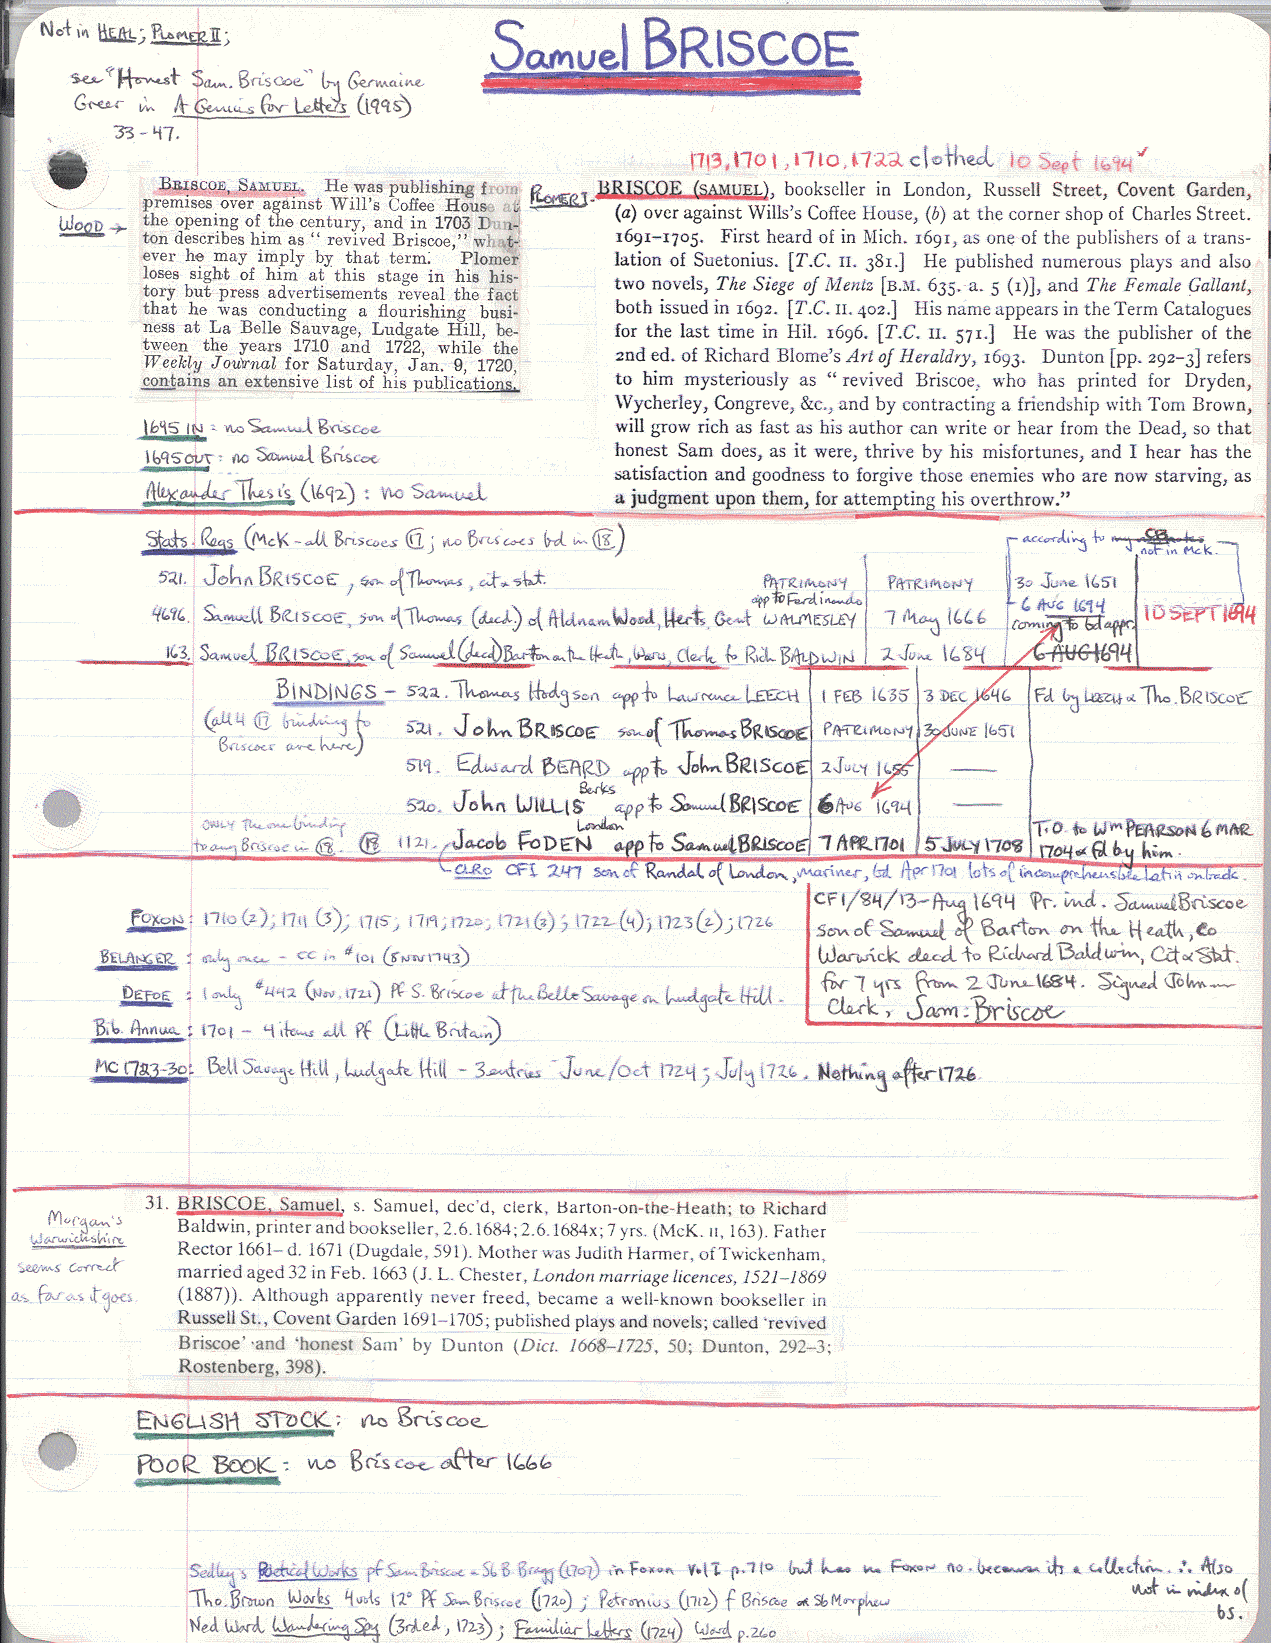 Samuel BRISCOE
Not in HEAL; PLOMER II;
see "Honest Sam. Briscoe" by Germaine
Greer in A Genius for Letters (1995)
33-47.
1713, 1701, 1710, 1722 clothed 10 Sept 1694 ✓
WOOD →
BRISCOE, SAMUEL. He was publishing from
premises over against Will's Coffee House at
the opening of the century, and in 1703 Dun-
ton describes him as " revived Briscoe," what-
ever he may imply by that term. Plomer
loses sight of him at this stage in his his-
tory but press advertisements reveal the fact
that he was conducting a flourishing busi-
ness at La Belle Sauvage, Ludgate Hill, be-
tween the years 1710 and 1722, while the
Weekly Journal for Saturday, Jan. 9, 1720,
contains an extensive list of his publications.
PLOMER I-
BRISCOE (SAMUEL), bookseller in London, Russell Street, Covent Garden,
(a) over against Wills's Coffee House, (b) at the corner shop of Charles Street.
1691–1705. First heard of in Mich. 1691, as one of the publishers of a trans-
lation of Suetonius. [T.C. II. 381.] He published numerous plays and also
two novels, The Siege of Mentz [B.M. 635. a. 5 (1)], and The Female Gallant,
both issued in 1692. [T.C. II. 402.] His name appears in the Term Catalogues
for the last time in Hil. 1696. [T.C. II. 571.] He was the publisher of the
2nd ed. of Richard Blome's Art of Heraldry, 1693. Dunton [pp. 292–3] refers
to him mysteriously as " revived Briscoe, who has printed for Dryden,
Wycherley, Congreve, &c., and by contracting a friendship with Tom Brown,
will grow rich as fast as his author can write or hear from the Dead, so that
honest Sam does, as it were, thrive by his misfortunes, and I hear has the
satisfaction and goodness to forgive those enemies who are now starving, as
a judgment upon them, for attempting his overthrow."
1695 IN: no Samuel Briscoe
1695 OUT: no Samuel Briscoe
Alexander Thesis (1692): no Samuel
Stats. Regs (McK - all Briscoes 17; no Briscoes bd in 18)
according to
not in McK.
521. John BRISCOE, son of Thomas, cit & stat. PATRIMONY PATRIMONY 30 June 1651
app to Ferdinando
6 AUG 1694
4696. Samuell BRISCOE, son of Thomas (decd.) of Aldnam Wood, Herts, Gent WALMESLEY 7 May 1666 coming to bd appr. 10 SEPT 1694
163. Samuel BRISCOE, son of Samuel (decd) Barton on the Heath, Warw, Clerk to Rich BALDWIN 2 June 1684 6 AUG 1694
BINDINGS - 522. Thomas Hodgson app to Lawrence LEECH 1 FEB 1635 3 DEC 1646 Fd by LEECH & Tho. BRISCOE
(all 4 17 binding to
Briscoes are here)
521. John BRISCOE son of Thomas BRISCOE PATRIMONY 30 JUNE 1651
519. Edward BEARD app to John BRISCOE 2 JULY 1655 —
Berks
520. John WILLIS app to Samuel BRISCOE 6 AUG 1694 —
ONLY the one binding
to any Briscoe in 18.
London
18 1121. Jacob FODEN app to Samuel BRISCOE 7 APR 1701 5 JULY 1708 T.O. to Wm PEARSON 6 MAR
1704 & Fd by him.
CLRO CFI 247 son of Randal of London, mariner, bd Apr 1701 lots of incomprehensible Latin on back.
FOXON: 1710 (2); 1711 (3); 1715; 1719; 1720; 1721 (3); 1722 (4); 1723 (2); 1726
BELANGER: only once - CC in #101 (8 NOV 1743)
DEFOE: 1 only #442 (Nov, 1721) Pf S. Briscoe at the Belle Savage on Ludgate Hill.
Bib. Annua: 1701 - 4 items all Pf (Little Britain)
MC 1723-30: Bell Savage Hill, Ludgate Hill - 3 entries - June/Oct 1724; July 1726. Nothing after 1726.
CFI/84/13 - Aug 1694 Pr. ind. Samuel Briscoe
son of Samuel of Barton on the Heath, Co
Warwick decd to Richard Baldwin, Cit & Stat.
for 7 yrs from 2 June 1684. Signed John
Clerk, Sam: Briscoe
Morgan's
Warwickshire
seems correct
as far as it goes.
31. BRISCOE, Samuel, s. Samuel, dec'd, clerk, Barton-on-the-Heath; to Richard
Baldwin, printer and bookseller, 2.6.1684; 2.6.1684x; 7 yrs. (McK. II, 163). Father
Rector 1661– d. 1671 (Dugdale, 591). Mother was Judith Harmer, of Twickenham,
married aged 32 in Feb. 1663 (J. L. Chester, London marriage licences, 1521–1869
(1887)). Although apparently never freed, became a well-known bookseller in
Russell St., Covent Garden 1691–1705; published plays and novels; called 'revived
Briscoe' and 'honest Sam' by Dunton (Dict. 1668–1725, 50; Dunton, 292–3;
Rostenberg, 398).
ENGLISH STOCK: no Briscoe
POOR BOOK: no Briscoe after 1666
Sedley's Poetical Works pf Sam Briscoe - Sb B. Bragg (1707) in Foxon Vol I p.710 but has no Foxon no. because its a collection. ∴ Also
not in index of
bs.
Tho. Brown Works 4 vols 12° Pf Sam Briscoe (1720); Petronius (1712) f Briscoe & Sb Morphew
Ned Ward Wandering Spy (3rd ed, 1723); Familiar Letters (1724) Ward p.260